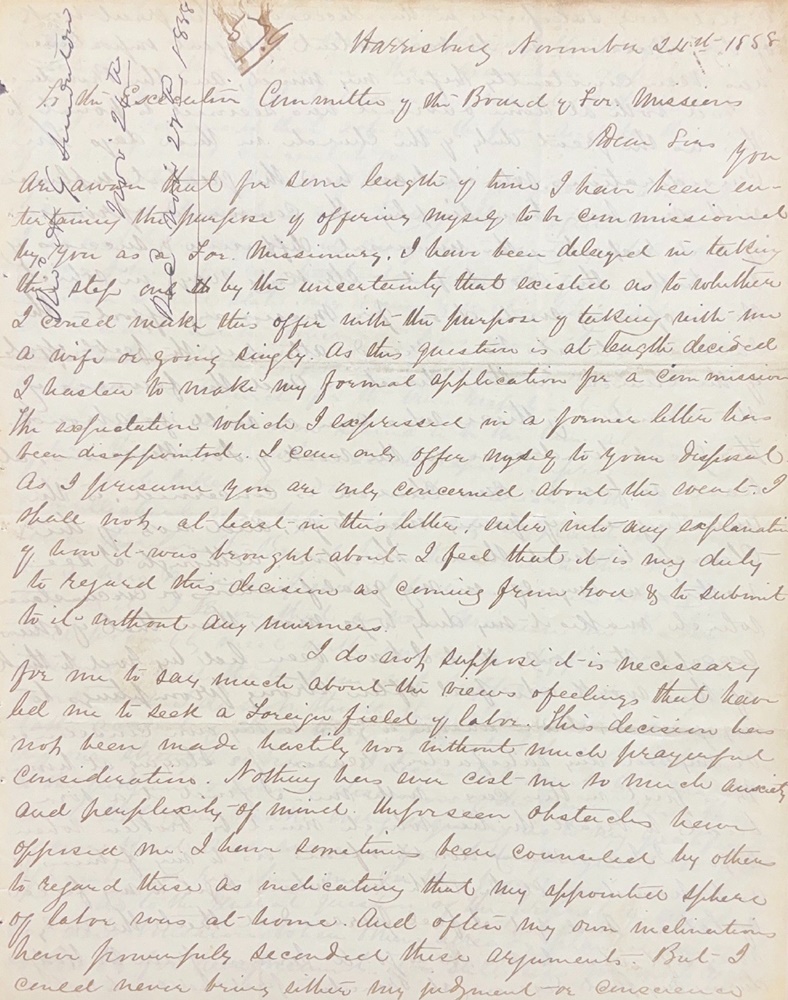 Harrisburg November 24th 1838
To the Executive Committee of the Board of For. Missions
Dear Sirs You
are aware that for some length of time I have been en-
tertaining the purpose of offering myself to be commissioned
by you as a For. Missionary. I have been delayed in taking
this step by the uncertainty that existed as to whether
I could make this offer with the purpose of taking with me
a wife or going singly. As this question is at length decided
I hasten to make my formal application for a commission
The expectation which I expressed in a former letter has
been disappointed. I can only offer myself to your disposal
As I presume you are only concerned about the event. I
shall not, at least in this letter, enter into any explanation
of how it was brought about. I feel that it is my duty
to regard this decision as coming from God & to submit
to it without any murmers.
I do not suppose it is necessary
for me to say much about the views & feelings that have
led me to seek a Foreign field of labor. This decision has
not been made hastily nor without much prayerful
consideration. Nothing has ever cost me so much anxiety
and perplexity of mind. Unforseen obstacles have
opposed me I have sometimes been counseled by others
to regard these as indicating that my appointed sphere
of labor was at home. And often my own inclinations
have powerfully seconded these arguments. But I
could never bring either my judgment or conscience
Nov: 24th
Nov: 27th 1838